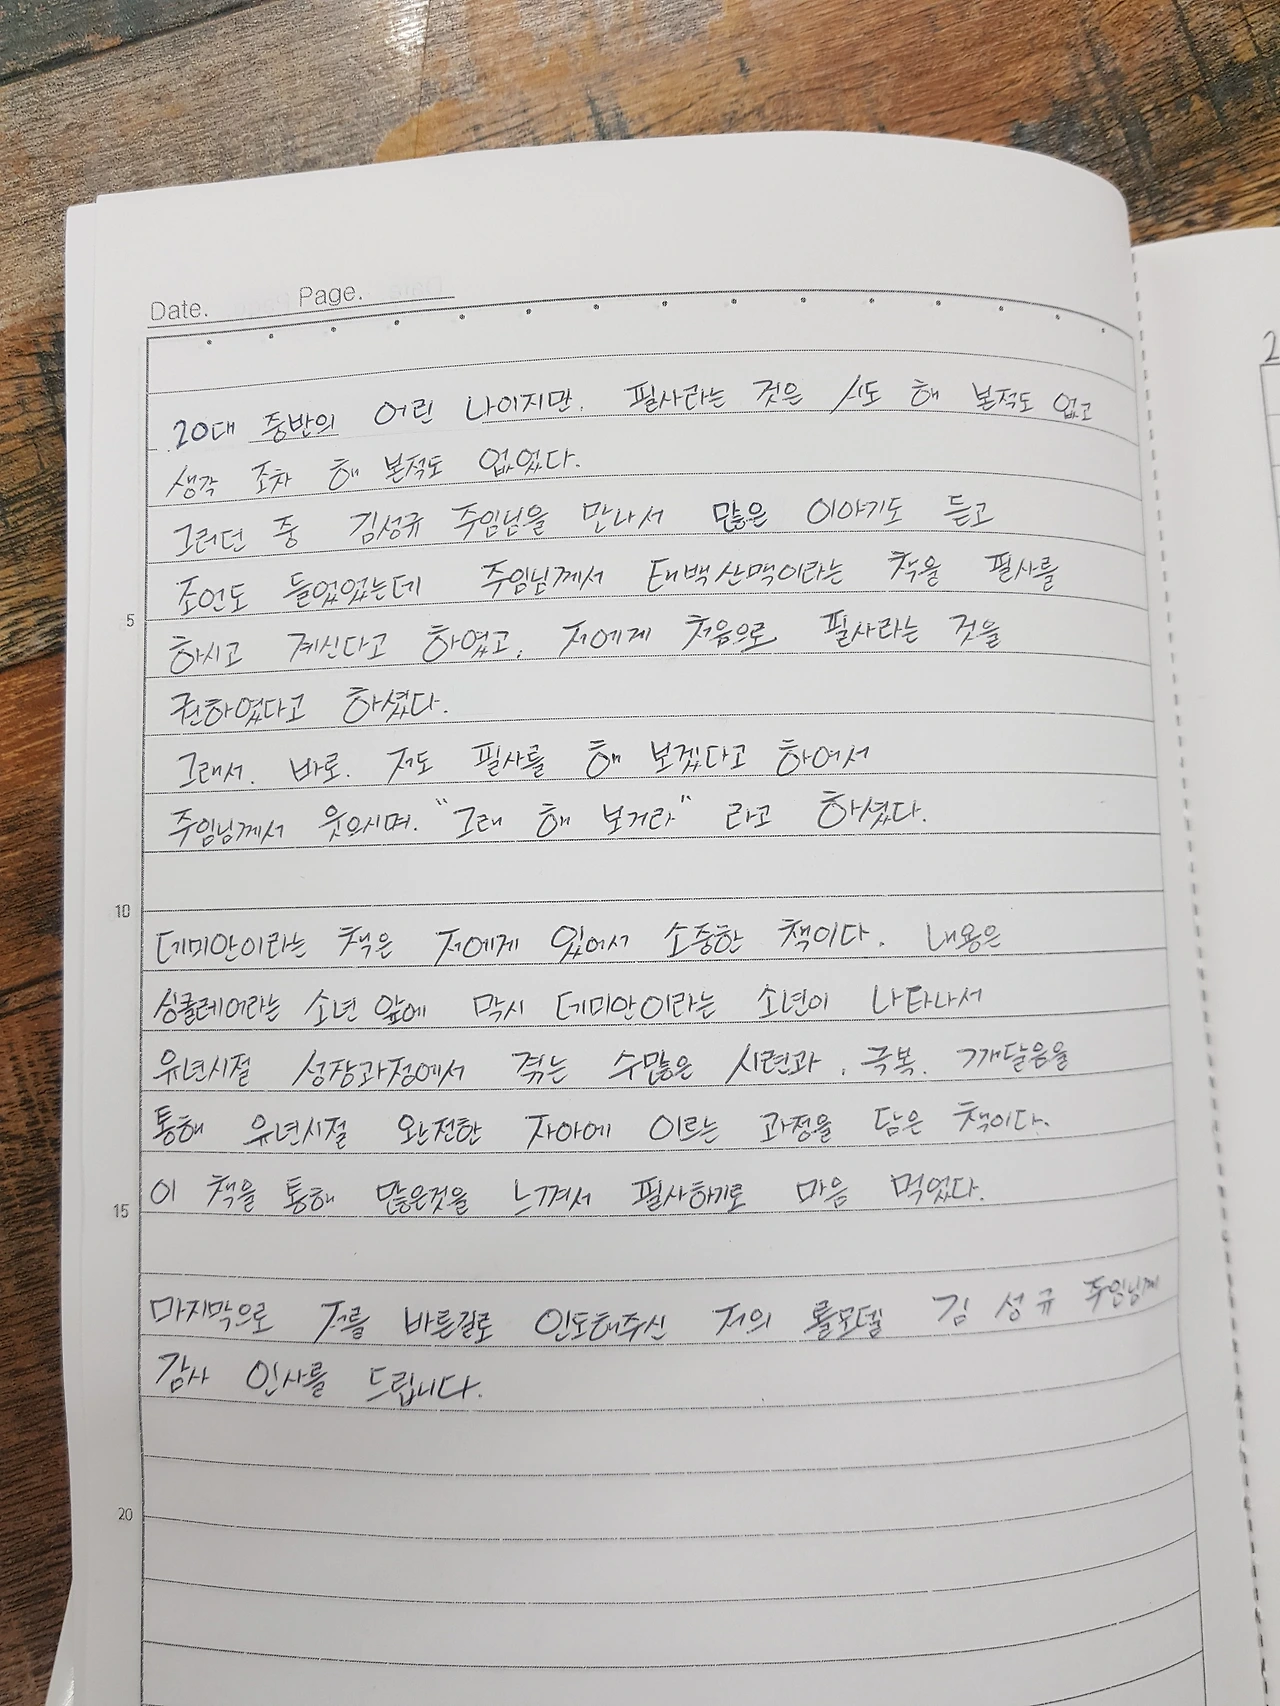 Date. Page.
20대 중반의 어린 나이지만. 필사라는 것은 시도 해 본적도 없고
생각 조차 해 본적도 없었다.
그러던 중 김성규 주임님을 만나서 많은 이야기도 듣고
조언도 들었었는데 주임님께서 태백산맥이라는 책을 필사를
5
하시고 계신다고 하였고, 저에게 처음으로 필사라는 것을
권하였다고 하셨다.
그래서. 바로. 저도 필사를 해 보겠다고 하여서
주임님께서 웃으시며. "그래 해 보거라" 라고 하셨다.
10
데미안이라는 책은 저에게 있어서 소중한 책이다. 내용은
싱클레어라는 소년 앞에 막시 데미안이라는 소년이 나타나서
유년시절 성장과정에서 겪는 수많은 시련과, 극복. 깨달음을
통해 유년시절 완전한 자아에 이르는 과정을 담은 책이다.
이 책을 통해 많은것을 느껴서 필사하기로 마음 먹었다.
15
마지막으로 저를 바른길로 인도해주신 저의 롤모델 김 성규 주임님께
감사 인사를 드립니다.
20
2